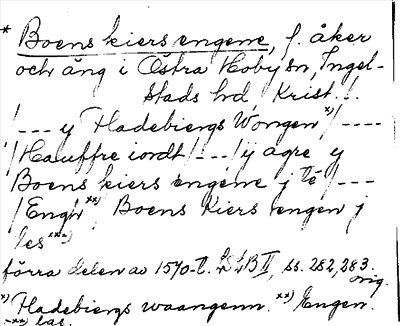 * Boens kiers engene, f. åker
och äng i Östra Hoby sn, Ingel-
stads hd, Krist. l.
/--- y Hadebiergs Wongen x)/----
/Hauffre iordt/---/ij agre y
Boens kiers engene j td/---
/Engh xx) Boens Kiers engen j
les xxx)
förra delen av 1570-t. LSLB II, ss. 282, 283.
orig.
x) Hadebiergs waangenn. xx) Engen.
xxx) las.